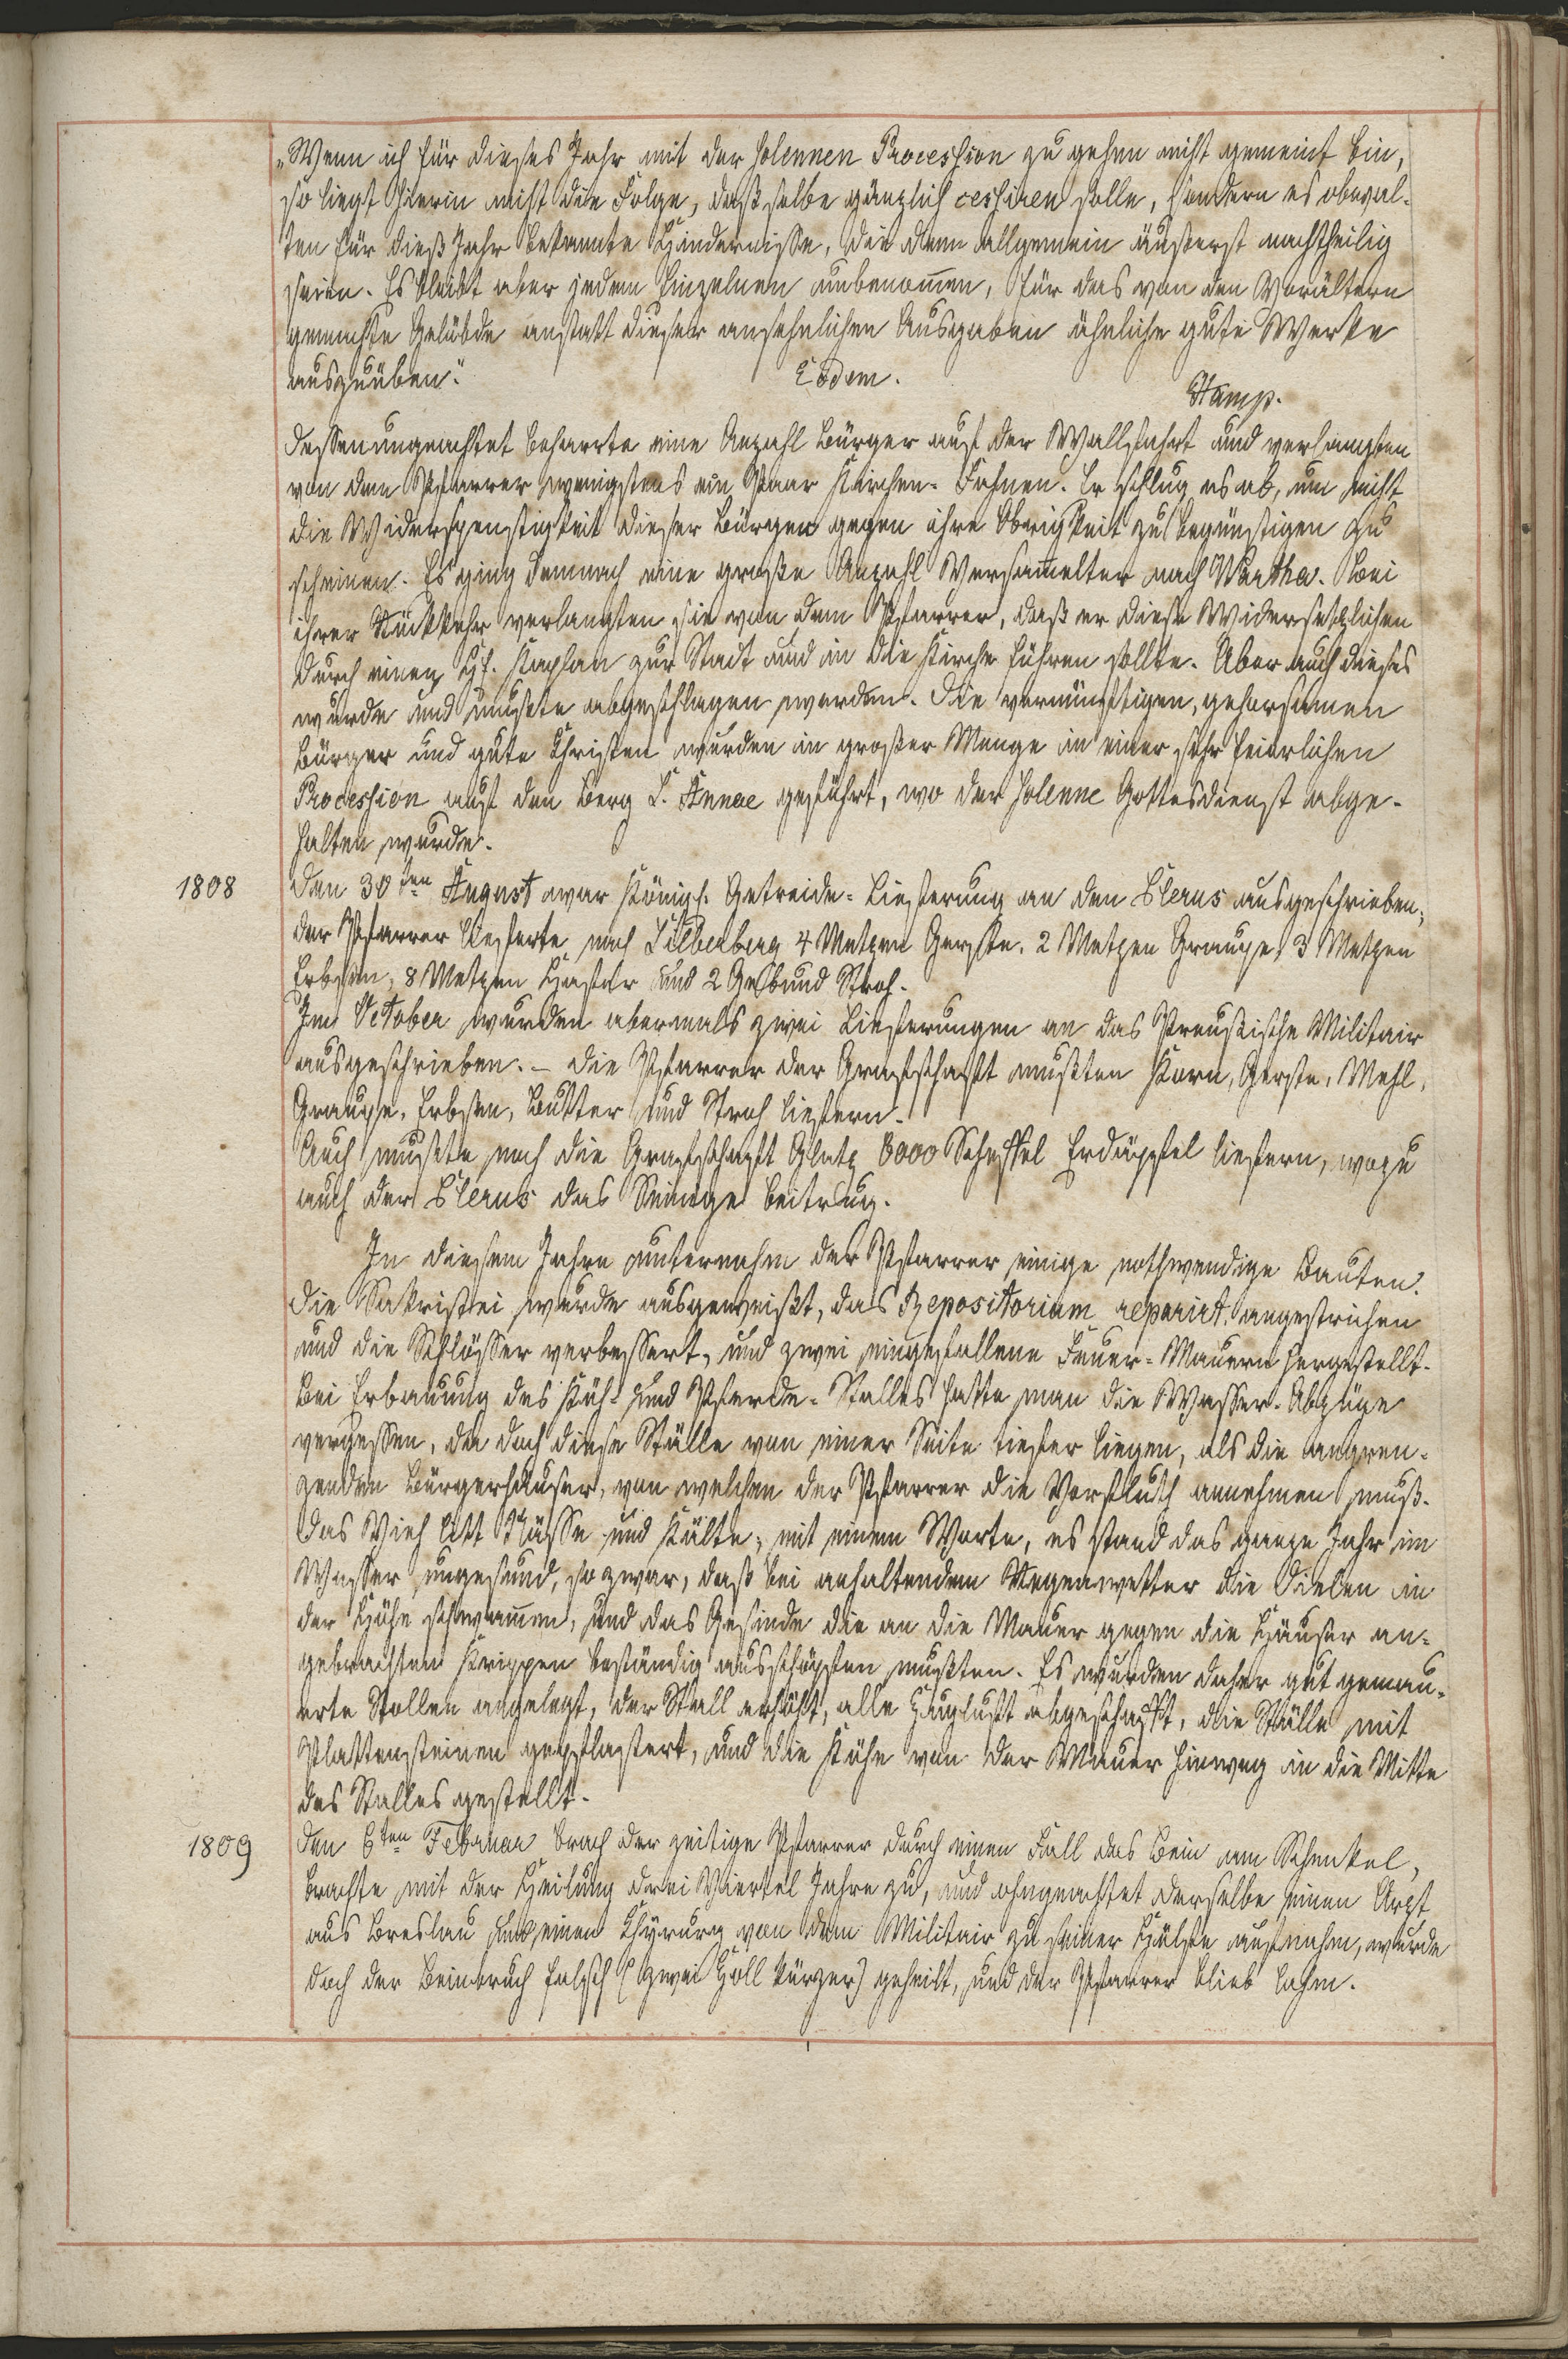 „Wenn ich für dieses Jahr mit der solennen Procession zu gehen nicht gemeint bin,
so liegt hierin nicht die Folge, daß selbe gänzlich cessiren solle, sondern es obwal-
ten für dieß Jahr bekannte Hindernisse, die dem allgemein äußerst nachtheilig
seien. Es bleibt aber jedem Einzelnen unbenom̄en, für das von den Vorältern
gemachte Gelübde anstatt dieser ansehnlichen Ausgaben ähnliche gute Werke
auszuüben.“ Eodem.
Stamp.
Dessenungeachtet beharrte eine Anzahl Bürger auf der Wallfahrt und verlangten
von dem Pfarrer wenigstens ein Paar Kirchen-Fahnen. Er schlug es ab, um nicht
die Widerspenstigkeit dieser Bürger gegen ihre Obrigkeit zu begünstigen zu
scheinen. Es ging demnach eine große Anzahl Versam̄elter nach Wartha. Bei
ihrer Rückkehr verlangten sie von dem Pfarrer, daß er diese Widersetzlichen
durch einen H. Kaplan zur Stadt und in die Kirche führen sollte. Aber auch dieses
wurde und mußte abgeschlagen werden. Die vernünftigen, gehorsamen
Bürger und gute Christen wurden in großer Menge in einer sehr feierlichen
Procession auf den Berg S. Annae geführt, wo der solenne Gottesdienst abge-
halten wurde.
1808 Den 30ten August war Königl. Getreide-Lieferung an den Clerus ausgeschrieben;
der Pfarrer lieferte nach Silberberg 4 Metzen Gerste, 2 Metzen Graupe, 3 Metzen
Erbsen, 8 Metzen Hafer und 2 Gebund Stroh.
Im October wurden abermals zwei Lieferungen an das Preußische Militair
ausgeschrieben. – Die Pfarrer der Grafschaft mußten Korn, Gerste, Mehl,
Graupe, Erbsen, Butter und Stroh liefern.
Auch mußte noch die Grafschaft Glatz 6000 Scheffel Erdäpfel liefern, wozu
auch der Clerus das Seinige beitrug.
In diesem Jahre unternahm der Pfarrer einige nothwendige Bauten.
Die Sakristei wurde ausgeweißt, das Repositorium reparirt, angestrichen
und die Schlösser verbessert, und zwei eingefallene Feuer-Mauern hergestellt.
Bei Erbauung des Küh- und Pferde-Stalles hatte man die Wasser-Abzüge
vergessen, da doch diese Ställe von einer Seite tiefer liegen, als die angren-
zenden Bürgerhäuser, von welchen der Pfarrer die Vorfluth annehmen muß.
Das Vieh litt Nässe und Kälte, mit einem Worte, es stand das ganze Jahr im
Wasser ungesund, so zwar, daß bei anhaltendem Regenwetter die Dielen in
der Höhe schwam̄en, und das Gesinde die an die Mauer gegen die Häuser an-
gebrachten Krippen beständig ausschöpfen mußten. Es wurden daher gut gemau-
erte Stollen angelegt, der Stall erhöht, alle Zugluft abgeschafft, die Ställe mit
Plattensteinen gepflastert, und die Kühe von der Mauer hinweg in die Mitte
des Stalles gestellt.
1809 Den 6ten Februar brach der zeitige Pfarrer durch einen Fall das Bein am Schenkel,
brachte mit der Heilung drei Viertel Jahre zu, und ohngeachtet derselbe einen Arzt
aus Breslau und einen Chyrurg von dem Militair zu seiner Hülfe aufnahm, wurde
doch der Beinbruch falsch (zwei Zoll kürzer) geheilt, und der Pfarrer blieb lahm.